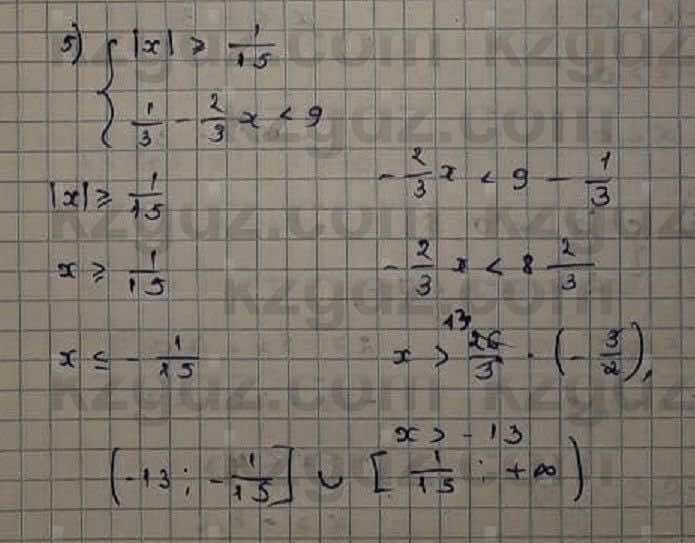 5) { |x| ≥ 1/15
1/3 - 2/3 x < 9
|x| ≥ 1/15
x ≥ 1/15
x ≤ - 1/15
- 2/3 x < 9 - 1/3
- 2/3 x < 8 2/3
x > 26/3 · (- 3/2),
13
x > - 13
(-13; - 1/15] ∪ [1/15; +∞)
kzgdz.com